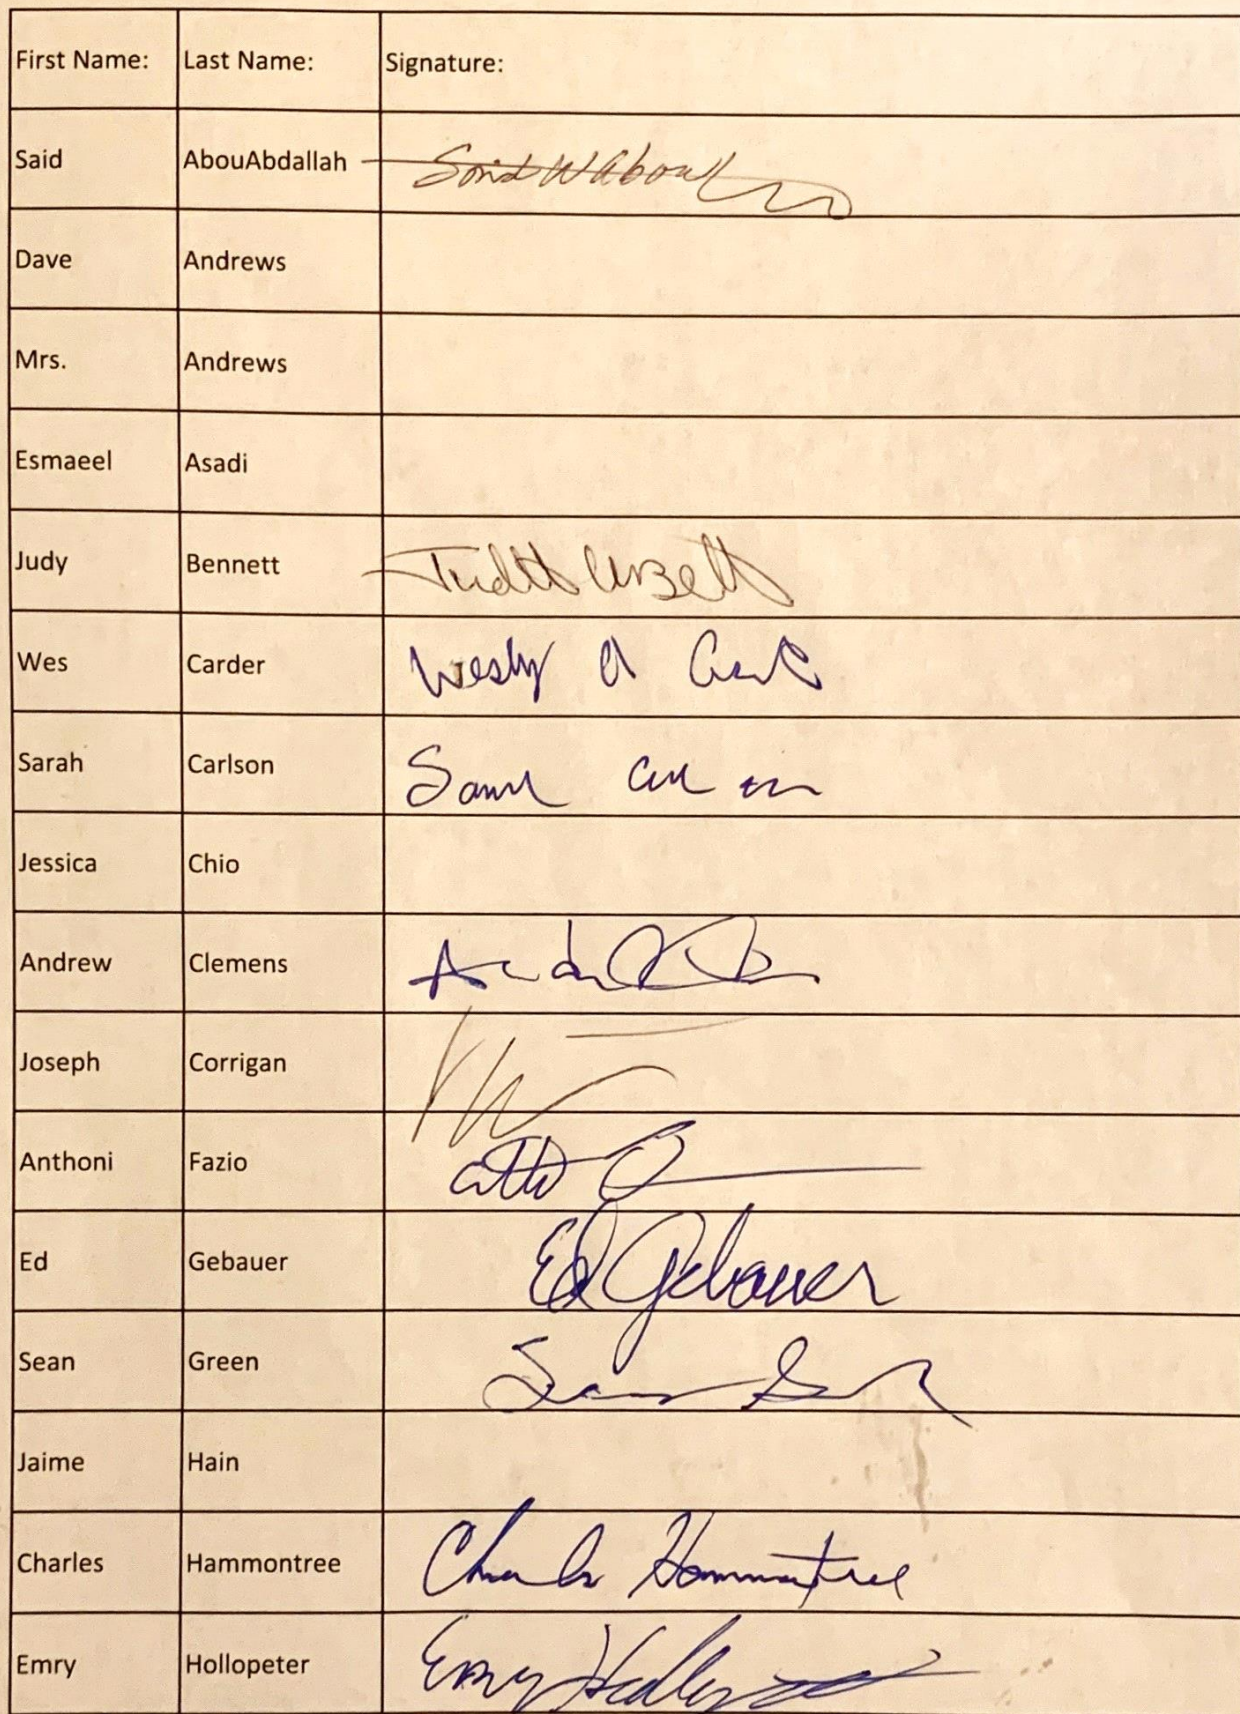 First Name: Last Name: Signature:
Said AbouAbdallah Said W Abou
Dave Andrews
Mrs. Andrews
Esmaeel Asadi
Judy Bennett
Wes Carder Wesly A
Sarah Carlson
Jessica Chio
Andrew Clemens
Joseph Corrigan
Anthoni Fazio
Ed Gebauer Ed Gebauer
Sean Green
Jaime Hain
Charles Hammontree Charles Hammontree
Emry Hollopeter Emry